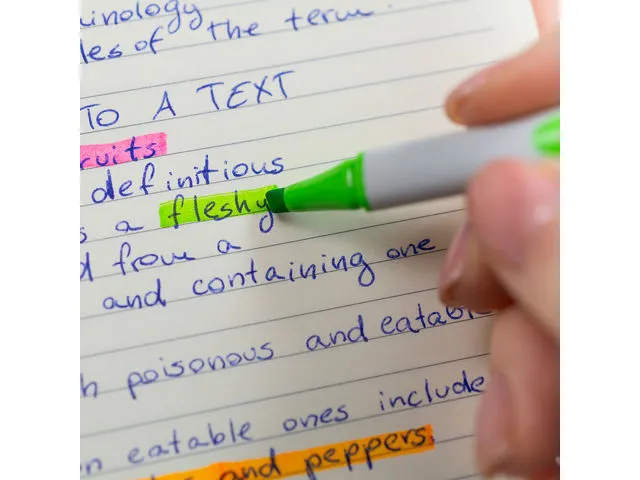 les of the term.
TO A TEXT
definitious
a fleshy
from a
and containing one
poisonous and
eatable ones include
and peppers.